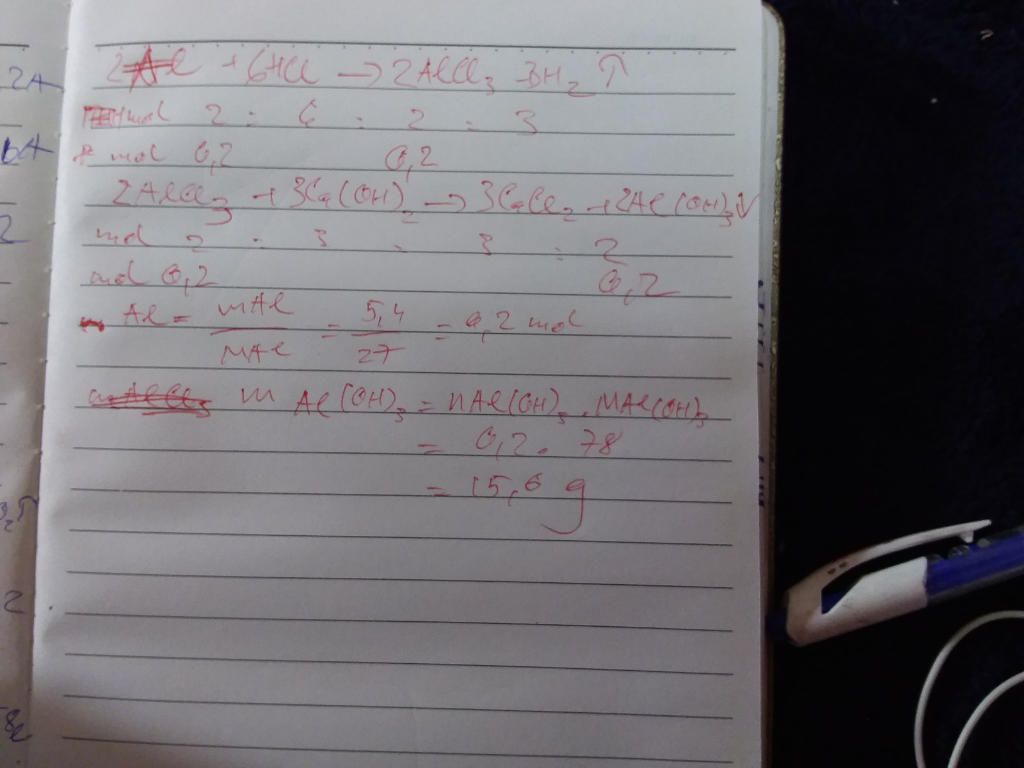 2Al + 6HCl → 2AlCl₃ 3H₂ ↑
mol 2 : 6 : 2 : 3
mol 0,2 0,2
2AlCl₃ + 3Ca(OH)₂ → 3CaCl₂ + 2Al(OH)₃↓
mol 2 : 3 : 3 : 2
mol 0,2 0,2
n Al = mAl / MAl = 5,4 / 27 = 0,2 mol
m Al(OH)₃ = nAl(OH)₃ . MAl(OH)₃
= 0,2 . 78
= 15,6 g